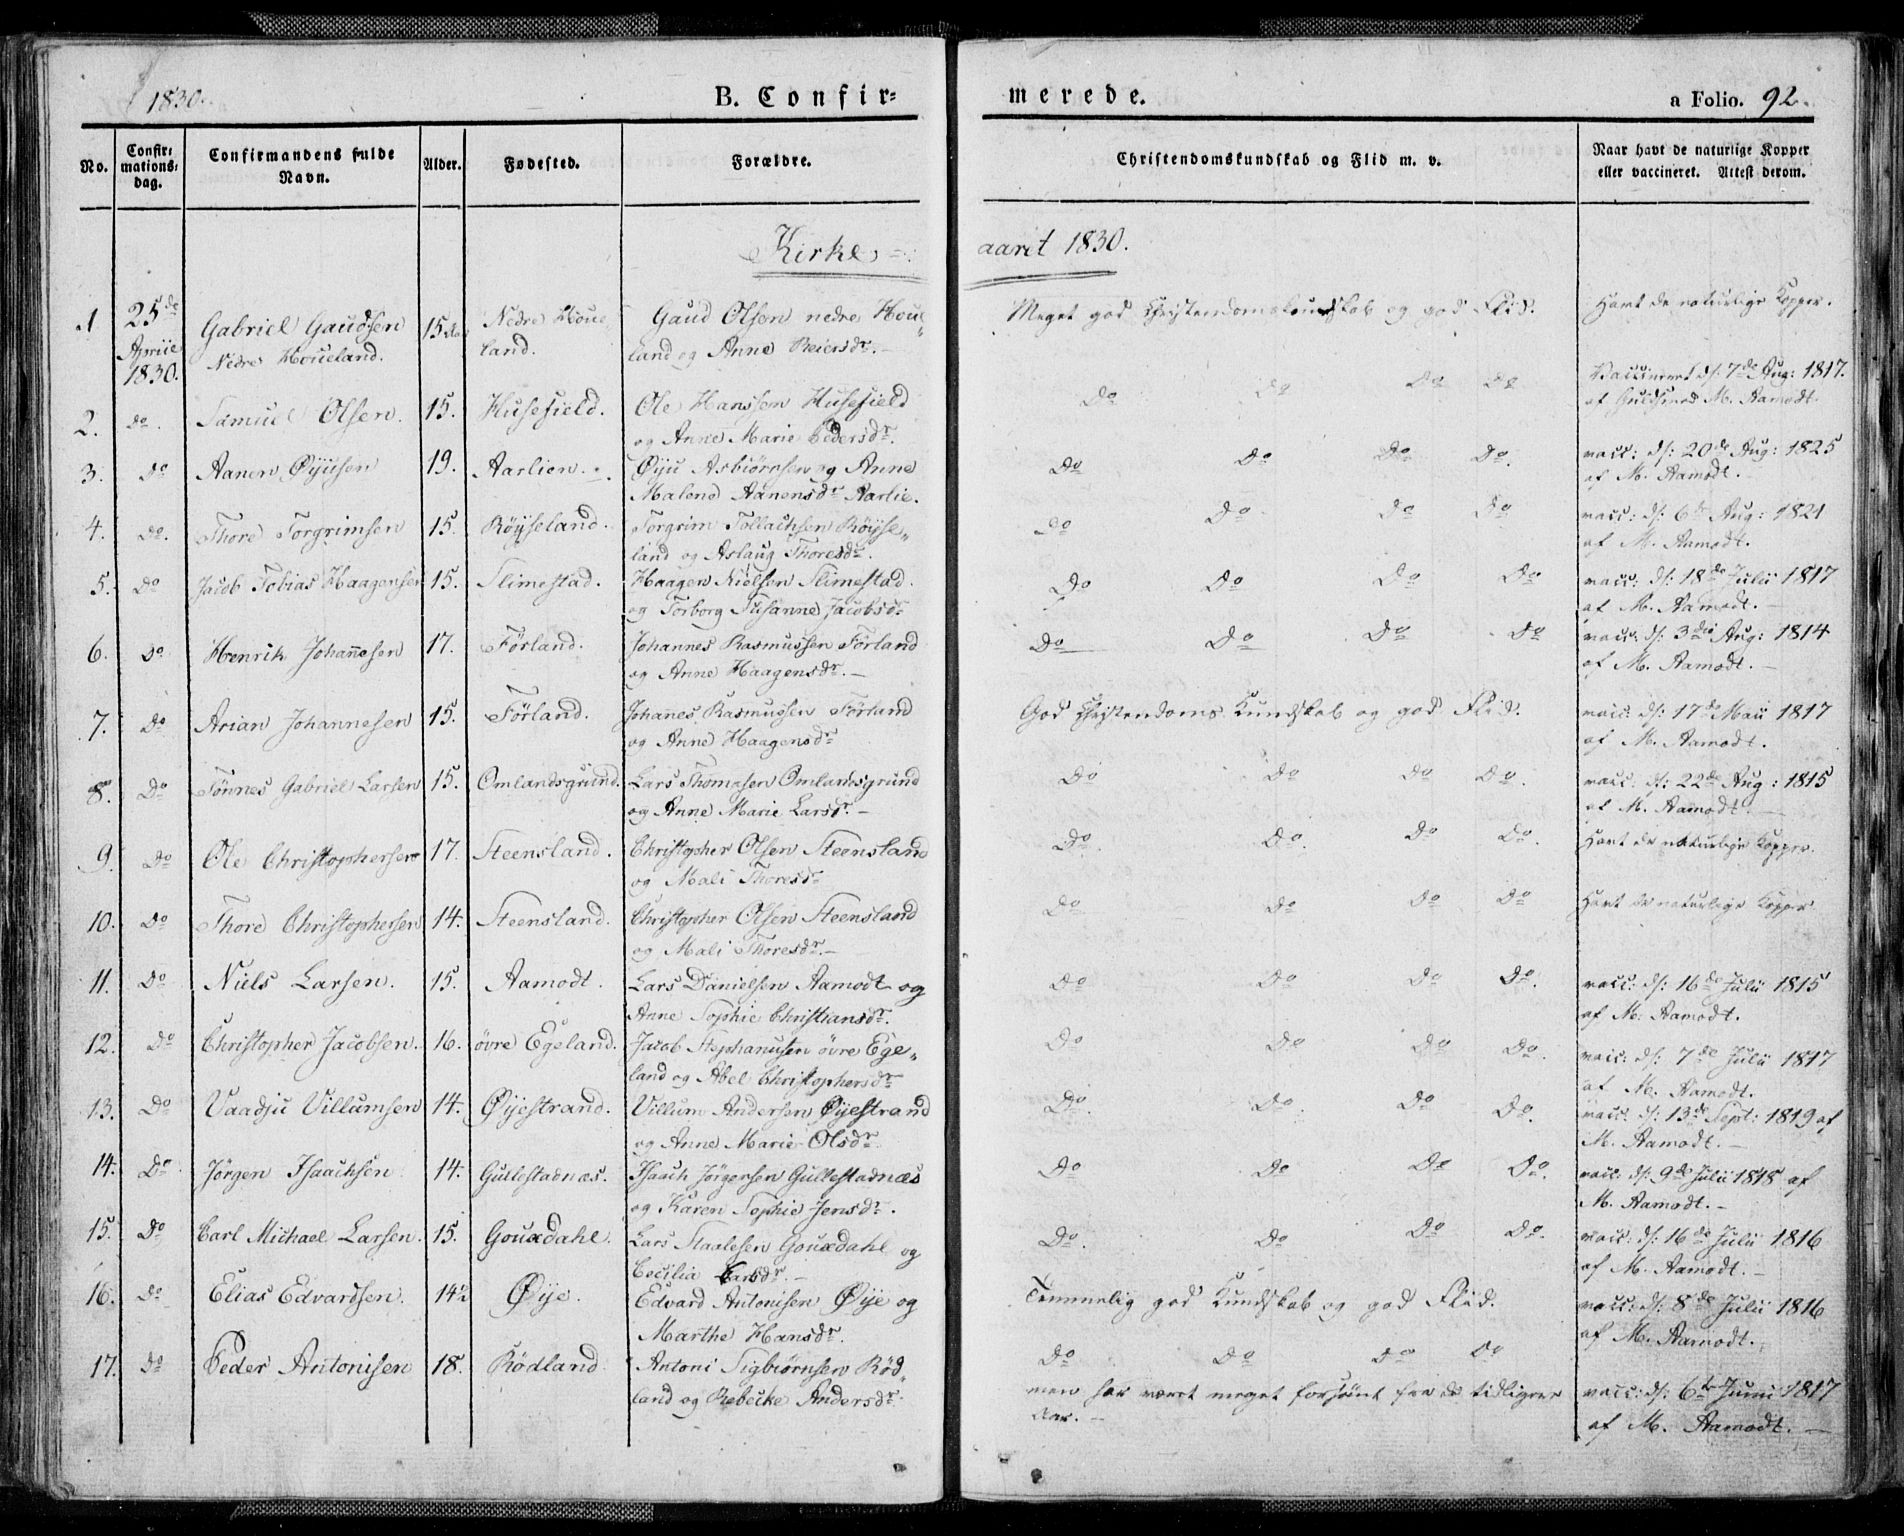 1830.
B. Confir=
merede.
a Folio. 92.
No.
Confir:
mations:
dag.
Confirmandens fulde
Navn.
Alder.
Fødested.
Forældre.
Christendomskundskab og Flid m. v.
Naar havt de naturlige Kopper
eller vaccineret. Attest derom.
Kirke=
aaret 1830.
1 25de Gabriel Gaudsen 15 Nedre Houe Gaud Olsen nedre Hou Meget god Christendomskundskab og god Flid. Havt de naturlige Kopper.
Aprili Nedre Houeland. land. land og Anne Reiersdr.
1830.
2. do. Samuel Olsen. 15. Husefield. Ole Hanssen Husefield Do Do Do Do Vaccineret d: 7de Aug: 1817.
og Anne Marie Pedersdr. af M. Aamodt.
3. Do Aanen Øyusen 19. Aarlien. Øyu Asbiørnsen og Anne Do Do Do Do. vacc: d: 20de Aug: 1825
Malene Aanensdr Aarlie. af M. Aamodt.
4. Do. Thore Torgrimsen 15. Røyseland. Torgrim Tollachsen Røyse„ Do Do Do Do vacc: d: 6te Aug: 1821
land og Aslaug Thoresdr. af M. Aamodt.
5. Do Jacob Tobias Haagensen 15. Slimestad. Haagen Nielsen Slimestad. Do Do Do Do vacc: d: 18de Julii 1817
og Torborg Susanne Jacobsdr af M. Aamodt.
6. Do Henrik Johannesen 17. Førland. Johannes Rasmussen Førland Do Do Do Do vacc: d: 3die Aug: 1814
og Anne Haagensdr. af M. Aamodt.
7. Do Arian Johannesen 15. Førland. Johanes Rasmussen Førland God Christendoms Kundskab og god Flid. vacc: d: 17de Maii 1817
og Anne Haagensdr af M. Aamodt.
8. Do Tønnes Gabriel Larsen 15. Omlandsgrund. Lars Thomasen Omlandsgrund Do Do Do Do. vacc: d: 22de Aug: 1815
og Anne Marie Larsdr. af M. Aamodt.
9. Do Ole Christophersen 17. Steensland. Christopher Olsen Steensland Do. Do. Do Do. Havt de naturlige Kopper.
og Mali Thoresdr
10. Do Thore Christophersen 14. Steensland. Christopher Olsen Steensland Do Do Do Do Havt de naturlige Kopper
og Mali Thoresdr.
11. Do Niels Larsen. 15. Aamodt. Lars Danielsen Aamodt og Do Do Do Do. vacc: d: 16de Julii 1815
Anne Sophie Christiansdr. af M. Aamodt.
12. Do Christopher Jacobsen. 16. øvre Egeland. Jacob Stephanusen øvre Ege„ Do Do Do Do. vacc: d: 7de Julii 1817
land og Abel Christophersdr af M. Aamodt.
13. Do Vaadju Villumsen 14. Øyestrand. Villum Andersen Øyestrand Do. Do. Do Do. vacc: d: 13de Sept: 1819 af
og Anne Marie Olsdr. M. Aamodt.
14. Do Jørgen Isaachsen 14. Gullestadnæs. Isaach Jørgensen Gullestadnæs Do Do Do Do. vacc: d: 9de Julii 1818 af
og Karen Sophie Jensdr. M. Aamodt.
15. Do Carl Michael Larsen. 15. Gouxdahl. Lars Staalesen Gouxdahl og Do. Do Do Do. vacc: d: 16de Julii 1816
Cecilia Larsdr. af M. Aamodt.
16. Do Elias Edvardsen. 14½ Øye. Edvard Antonisen Øye og Temmelig god Kundskab og god Flid. vacc: d: 8de Julii 1816
Marthe Hansdr. af M. Aamodt.
17. Do Peder Antonisen 18. Rødland Antoni Sigbiørnsen Rød„ Do Do Do Do
land og Rebecke Andersdr. men har været meget forsømt fra de tidligere vacc: d: 6te Junii 1817
Aar. af M. Aamodt.